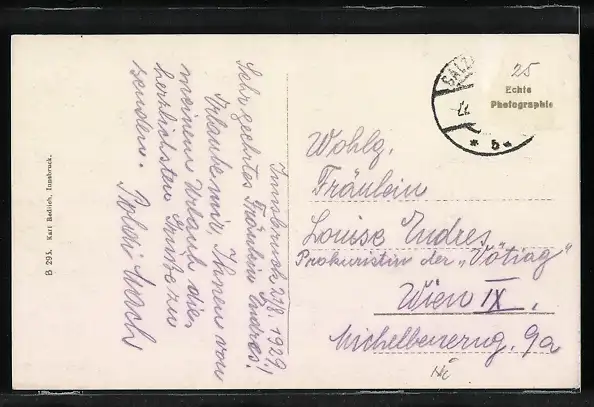 Innsbruck 21/8. 1929.
Sehr geehrtes Fräulein Endres!
Erlaube mir, Ihnen von
meinem Urlaub die
herzlichsten Grüße zu
senden.
Poldi
B 295. Karl Redlich, Innsbruck.
25
Echte
Photographie
5
Wohlg.
Fräulein
Louise Endres
Prokuristin der „Vötiag"
Wien IX.
Michelbeuerng. 9a